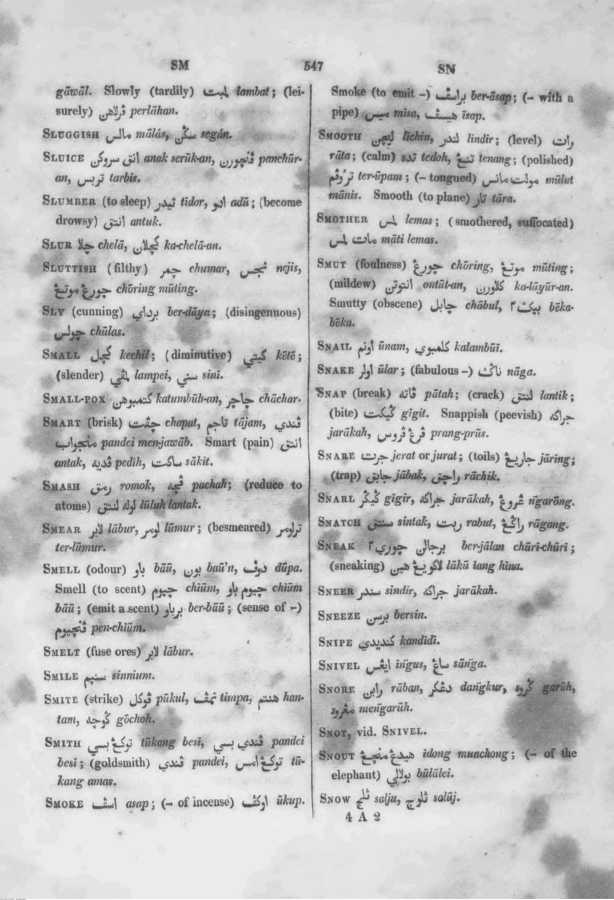 SM 547 SN
gāwāl. Slowly (tardily) لمبت lambat; (lei-
surely) ڤرلاهن perlāhan.
SLUGGISH مالس mālas, سڬن segán.
SLUICE انق سروكن anak serūk-an, ڤنچورن panchūr-
an, تربس tarbis.
SLUMBER (to sleep) تيدر tīdor, ادو adū; (become
drowsy) انتق antuk.
SLUR چلا chelā, كچلان ka-chelā-an.
SLUTTISH (filthy) چمر chumar, نجس nejis,
چورڠ موتڠ chōring mūting.
SLY (cunning) برداي ber-dāya; (disingenuous)
چولس chūlas.
SMALL كچل kechil; (diminutive) كيتي kētē;
(slender) لمڤي lampei, سني sinī.
SMALL-POX كتمبوهن katumbūh-an, چاچر chāchar.
SMART (brisk) چڤت chapat, تاجم tājam, ڤندي
منجواب pandei men-jawāb. Smart (pain) انتق
antak, ڤديه pedih, ساكت sākit.
SMASH رمق romok, ڤچه pachah; (reduce to
atoms) لوله لنتق lūluh lantak.
SMEAR لابر lābur, لومر lūmur; (besmeared) ترلومر
ter-lūmur.
SMELL (odour) باو bāū, بون baū'n, دوڤ dūpa.
Smell (to scent) چيوم chīum, چيوم باو chīum
bāū; (emit a scent) بربااو ber-bāū; (sense of -)
ڤنچيوم pen-chīum.
SMELT (fuse ores) لابر lābur.
SMILE سنيم sinnium.
SMITE (strike) ڤوكل pūkul, تمڤ timpa, هنتم han-
tam, ڬوچه gōchoh.
SMITH توكڠ بسي tūkang besī, ڤندي بسي pandei
besī; (goldsmith) ڤندي pandei, توكڠ امس tū-
kang amas.
SMOKE اسڤ asap; (- of incense) اوكڤ ūkup.
Smoke (to emit -) براسڤ ber-āsap; (- with a
pipe) ميس misa, هيسڤ īsap.
SMOOTH ليچن līchin, لندر lindir; (level) رات
rāta; (calm) تده tedoh, تنڠ tenang; (polished)
تراوڤم ter-ūpam; (- tongued) مولت مانس mūlut
mānis. Smooth (to plane) تار tāra.
SMOTHER لمس lemas; (smothered, suffocated)
مات لمس māti lemas.
SMUT (foulness) چورڠ chōring, موتڠ mūting;
(mildew) اونتوتن ontūt-an, كلايورن ka-lāyūr-an.
Smutty (obscene) چابل chābul, بيك٢ bēka-
bēka.
SNAIL اونم ūnam, كلمبوي kalambūī.
SNAKE اولر ūlar; (fabulous -) ناڬ nāga.
SNAP (break) ڤاته pātah; (crack) لنتق lantik;
(bite) ڬيڬت gīgit. Snappish (peevish) جراكه
jarākah, ڤرڠ ڤروس prang-prūs.
SNARE جرت jerat or jurat; (toils) جاريڠ jāring;
(trap) جابق jābak, راچق rāchik.
SNARL ڬيڬر gīgir, جراكه jarākah, ڠروڠ ngarōng.
SNATCH سنتق sintak, ربت rabut, راڬڠ rāgang.
SNEAK برجالن چوري٢ ber-jālan chūri-chūri;
(sneaking) لاكو يڠ هين lākū iang hīna.
SNEER سندر sindir, جراكه jarākah.
SNEEZE برسن bersin.
SNIPE كنديدي kandīdī.
SNIVEL ايڠس ingus, ساڠ sānga.
SNORE رابن rāban, دڠكر dangkur, ڬاروه garūh,
مڠاروه mengarūh.
SNOT, vid. SNIVEL.
SNOUT هيدڠ منچڠ idong munchong; (- of the
elephant) بولالي būlālei.
SNOW ثلج salju, ثلوج salūj.
4 A 2